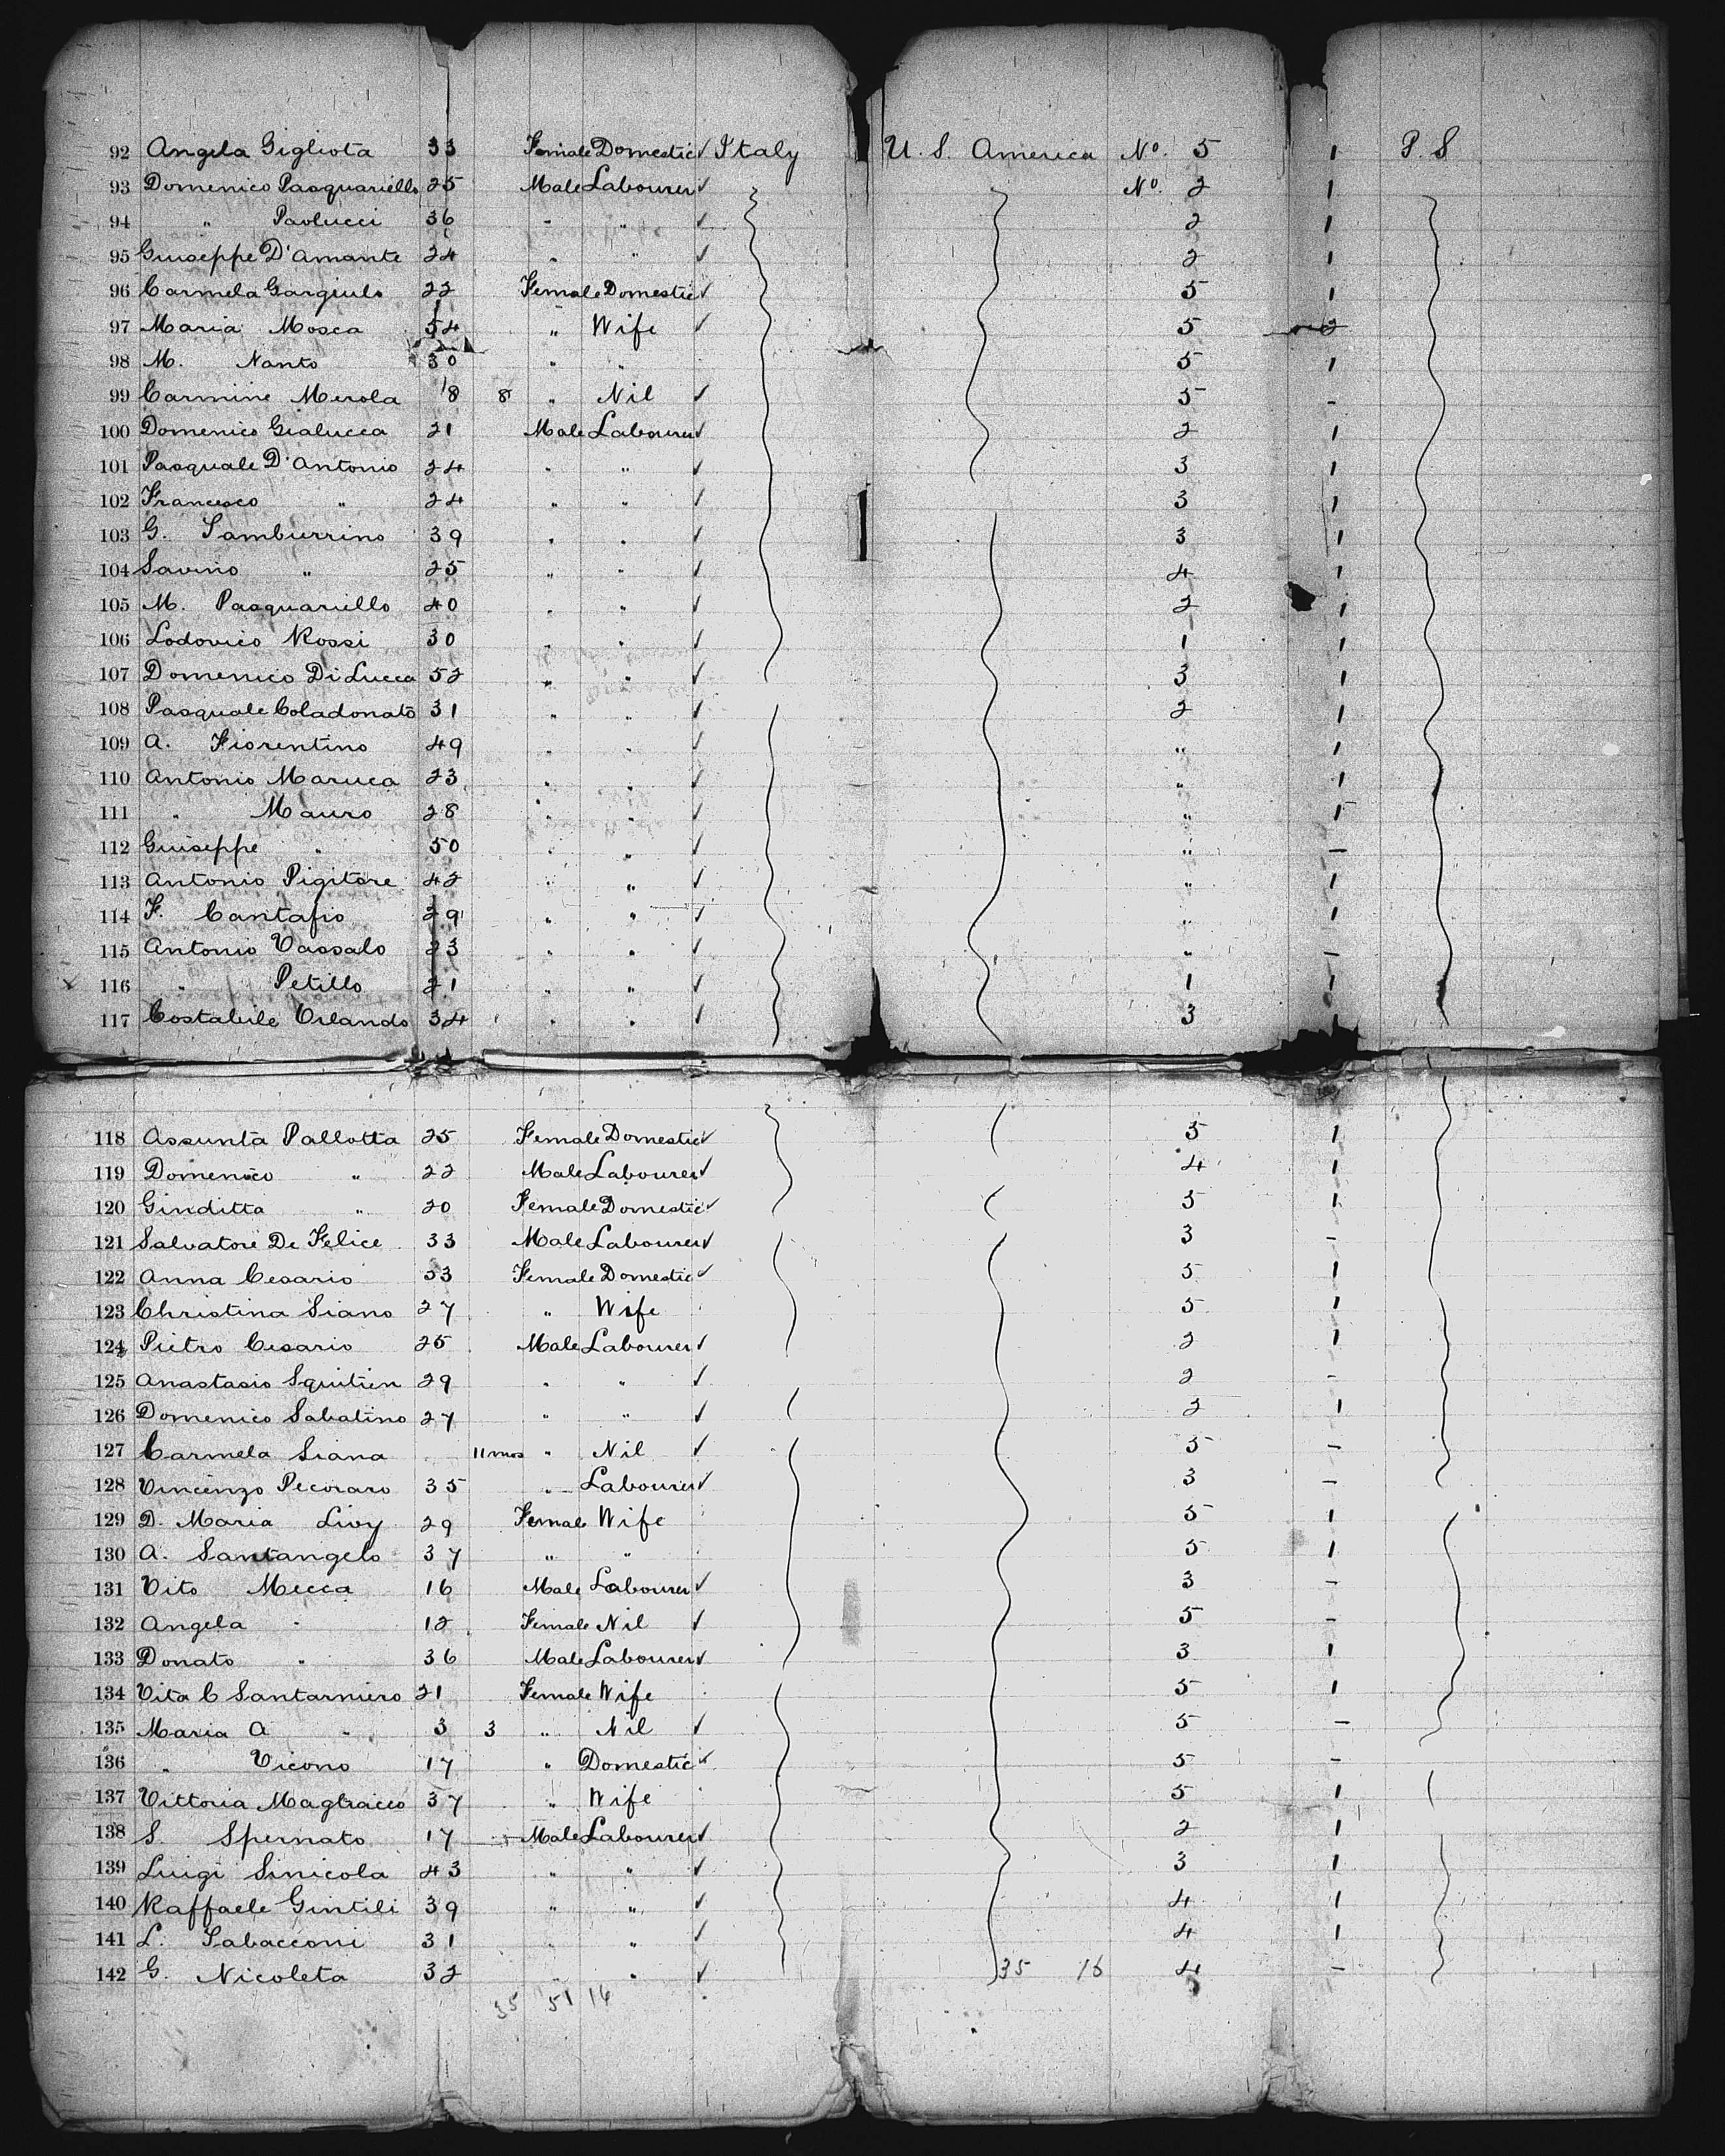 92 Angela Gigliota 33 Female Domestic ✓ Italy U. S. America No. 5 1 P. S
93 Domenico Pasquariello 25 Male Labourer ✓ No. 2 1
94 " Paolucci 36 " " ✓ 2 1
95 Giuseppe D'Amante 24 " " ✓ 2 1
96 Carmela Gargiulo 22 Female Domestic ✓ 5 1
97 Maria Mosca 54 " Wife ✓ 5 2
98 M. Nanto 30 " " 5 1
99 Carmine Merola 8 8 " Nil ✓ 5 -
100 Domenico Gialucca 21 Male Labourer ✓ 2 1
101 Pasquale D'Antonio 24 " " ✓ 3 1
102 Francesco " 24 " " ✓ 3 1
103 G. Samburrino 39 " " ✓ 3 1
104 Savino " 25 " " ✓ 4 1
105 M. Pasquariello 40 " " ✓ 2 1
106 Lodovico Rossi 30 " " ✓ 1 1
107 Domenico Di Lucca 52 " " ✓ 3 1
108 Pasquale Coladonato 31 " " ✓ 2 1
109 A. Fiorentino 49 " " ✓ " 1
110 Antonio Maruca 23 " " ✓ " 1
111 " Mauro 28 " " ✓ " 1
112 Guiseppe " 50 " " ✓ " -
113 Antonio Pigitore 42 " " ✓ " 1
114 F. Cantafio 29 " " ✓ " 1
115 Antonio Vassalo 23 " " ✓ " -
116 " Petillo 21 " " ✓ 1 1
117 Costabile Orlando 34 " " ✓ 3 1
118 Assunta Pallotta 25 Female Domestic ✓ 5 1
119 Domenico " 22 Male Labourer ✓ 4 1
120 Ginditta " 20 Female Domestic ✓ 5 1
121 Salvatore De Felice 33 Male Labourer ✓ 3 -
122 Anna Cesario 53 Female Domestic ✓ 5 1
123 Christina Siano 27 " Wife 5 1
124 Pietro Cesario 25 Male Labourer ✓ 2 1
125 Anastasio Squitien 29 " " ✓ 2 -
126 Domenico Sabatino 27 " " ✓ 2 1
127 Carmela Siana 11 mos " Nil ✓ 5 -
128 Vincenzo Pecoraro 35 " Labourer ✓ 3 -
129 D. Maria Livy 29 Female Wife 5 1
130 A. Santangelo 37 " " 5 1
131 Vito Mecca 16 Male Labourer ✓ 3 -
132 Angela " 12 Female Nil ✓ 5 -
133 Donato " 36 Male Labourer ✓ 3 1
134 Vita C Santarniero 21 Female Wife 5 1
135 Maria A " 3 3 " Nil ✓ 5 -
136 " Vicono 17 " Domestic ✓ 5 -
137 Vittoria Magliacco 37 " Wife 5 1
138 S. Spernato 17 Male Labourer ✓ 2 1
139 Luigi Sinicola 43 " " ✓ 3 1
140 Raffaele Gintili 39 " " ✓ 4 1
141 L. Sabacconi 31 " " ✓ 4 1
142 G. Nicoleta 32 " " ✓ 35 16 4 -
35 51 16